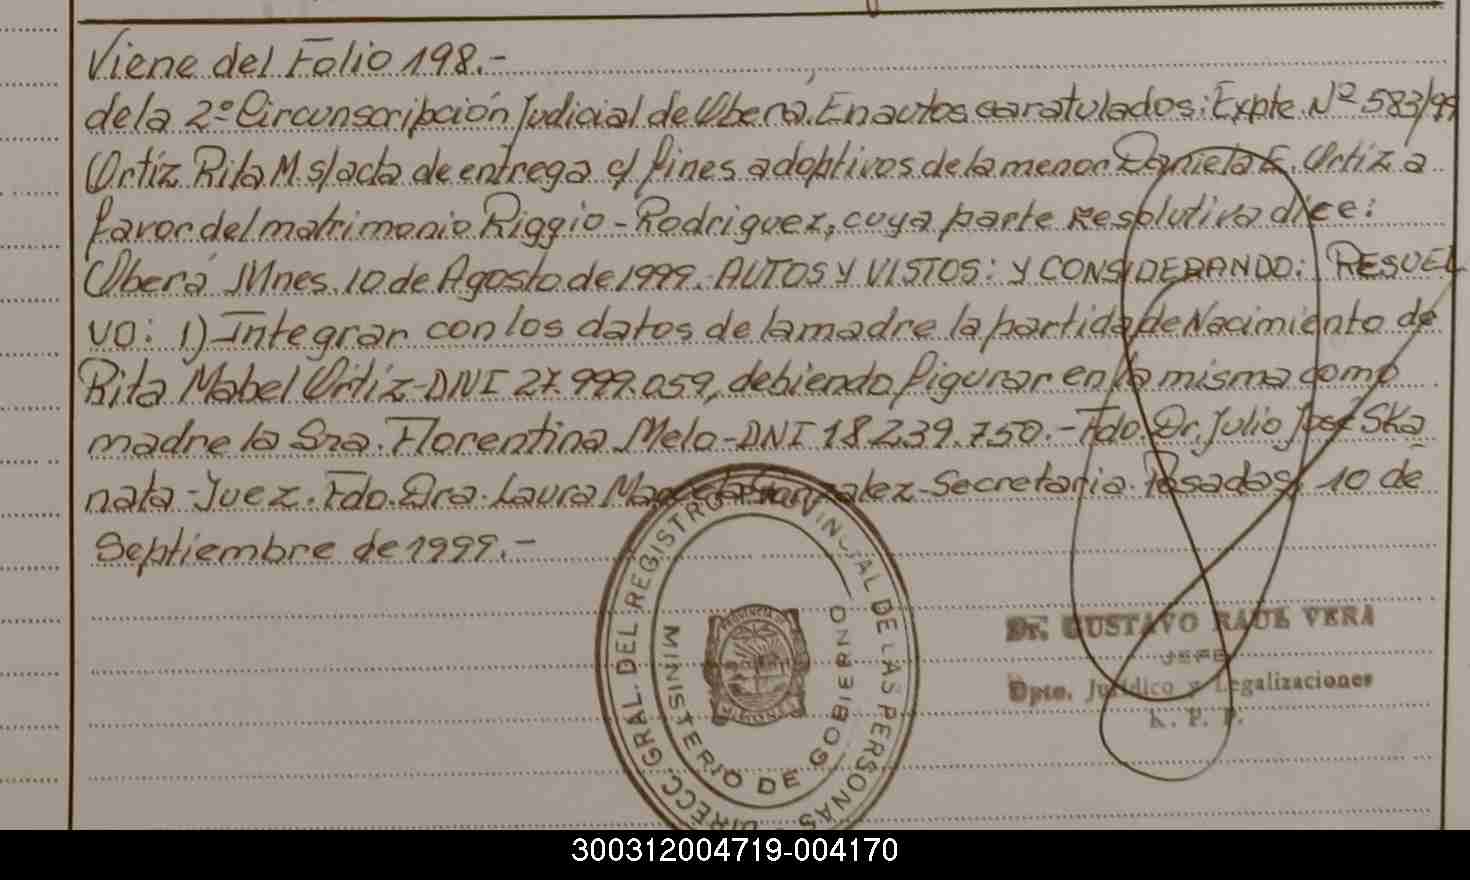 Viene del Folio 198.-
de la 2º Circunscripción Judicial de Oberá. En autos caratulados: Expte. Nº 583/99
Ortíz Rita M. s/acta de entrega c/ fines adoptivos de la menor Daniela E. Ortíz a
favor del matrimonio Riggio - Rodriguez, cuya parte resolutiva dice:
Oberá Mnes. 10 de Agosto de 1999. AUTOS Y VISTOS: Y CONSIDERANDO: RESUEL
VO: 1) Integrar con los datos de la madre la partida de Nacimiento de
Rita Mabel Ortíz - DNI 27.999.059, debiendo figurar en la misma como
madre la Sra. Florentina Melo - DNI 18.239.750.- Fdo. Dr. Julio José Ska
nata - Juez. Fdo. Dra. Laura González - Secretaria. Posadas, 10 de
Septiembre de 1999.-
DIRECC. GRAL. DEL REGISTRO PROVINCIAL DE LAS PERSONAS
MINISTERIO DE GOBIERNO
PROVINCIA
MISIONES
Dr. GUSTAVO RAUL VERA
JEFE
Dpto. Jurídico y Legalizaciones
R. P. P.
300312004719-004170